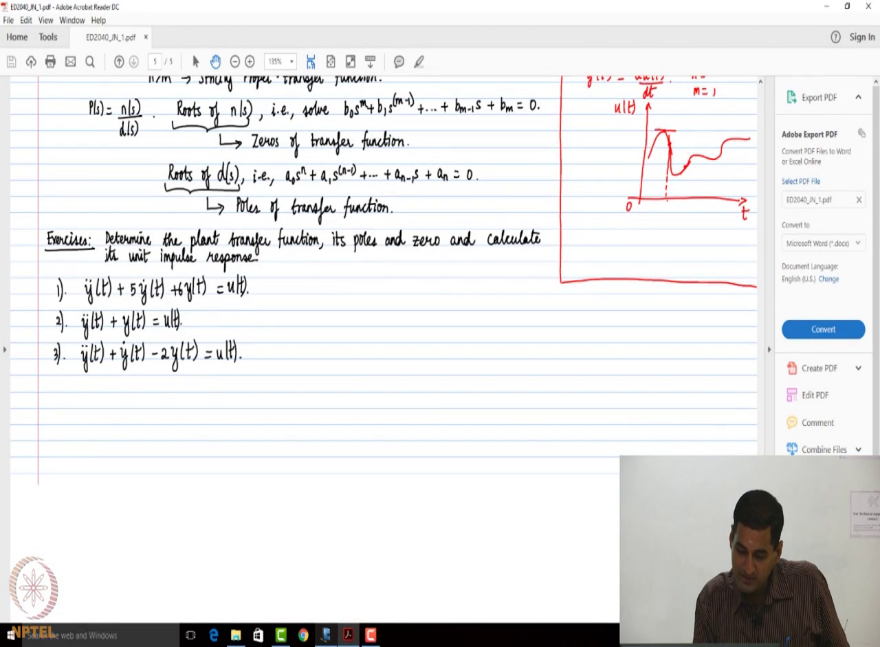 ED2040_JN_1.pdf - Adobe Acrobat Reader DC
File Edit View Window Help
Home Tools ED2040_JN_1.pdf × Sign In
5 / 5 135%
n>m → strictly proper transfer function.
P(s) = n(s)/d(s). Roots of n(s), i.e., solve b₀sᵐ + b₁s⁽ᵐ⁻¹⁾ + ... + bₘ₋₁s + bₘ = 0.
↳ Zeros of transfer function.
Roots of d(s), i.e., a₀sⁿ + a₁s⁽ⁿ⁻¹⁾ + ... + aₙ₋₁s + aₙ = 0.
↳ Poles of transfer function.
Exercises: Determine the plant transfer function, its poles and zero and calculate
its unit impulse response.
1). ÿ(t) + 5ẏ(t) + 6y(t) = u(t).
2). ÿ(t) + y(t) = u(t).
3). ÿ(t) + ẏ(t) - 2y(t) = u(t).
dt m=1
u(t)
0 t
Export PDF
Adobe Export PDF
Convert PDF Files to Word
or Excel Online
Select PDF File
ED2040_JN_1.pdf X
Convert to
Microsoft Word (*.docx)
Document Language:
English (U.S.) Change
Convert
Create PDF
Edit PDF
Comment
Combine Files
NPTEL
the web and Windows